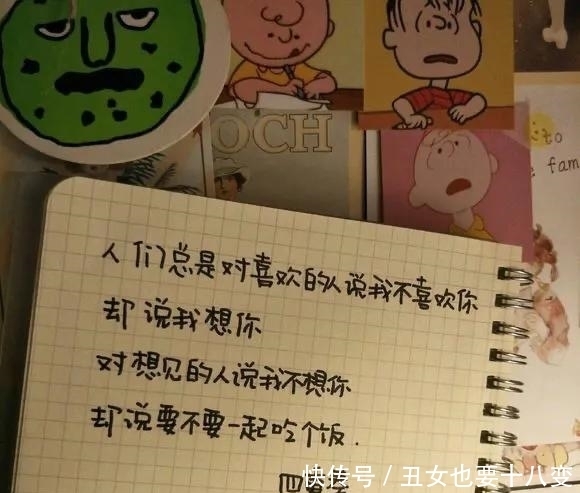 OCH
to
fam
人们总是对喜欢的人说我不喜欢你
却说我想你
对想见的人说我不想你
却说要不要一起吃个饭.
快传号 / 丑女也要十八变